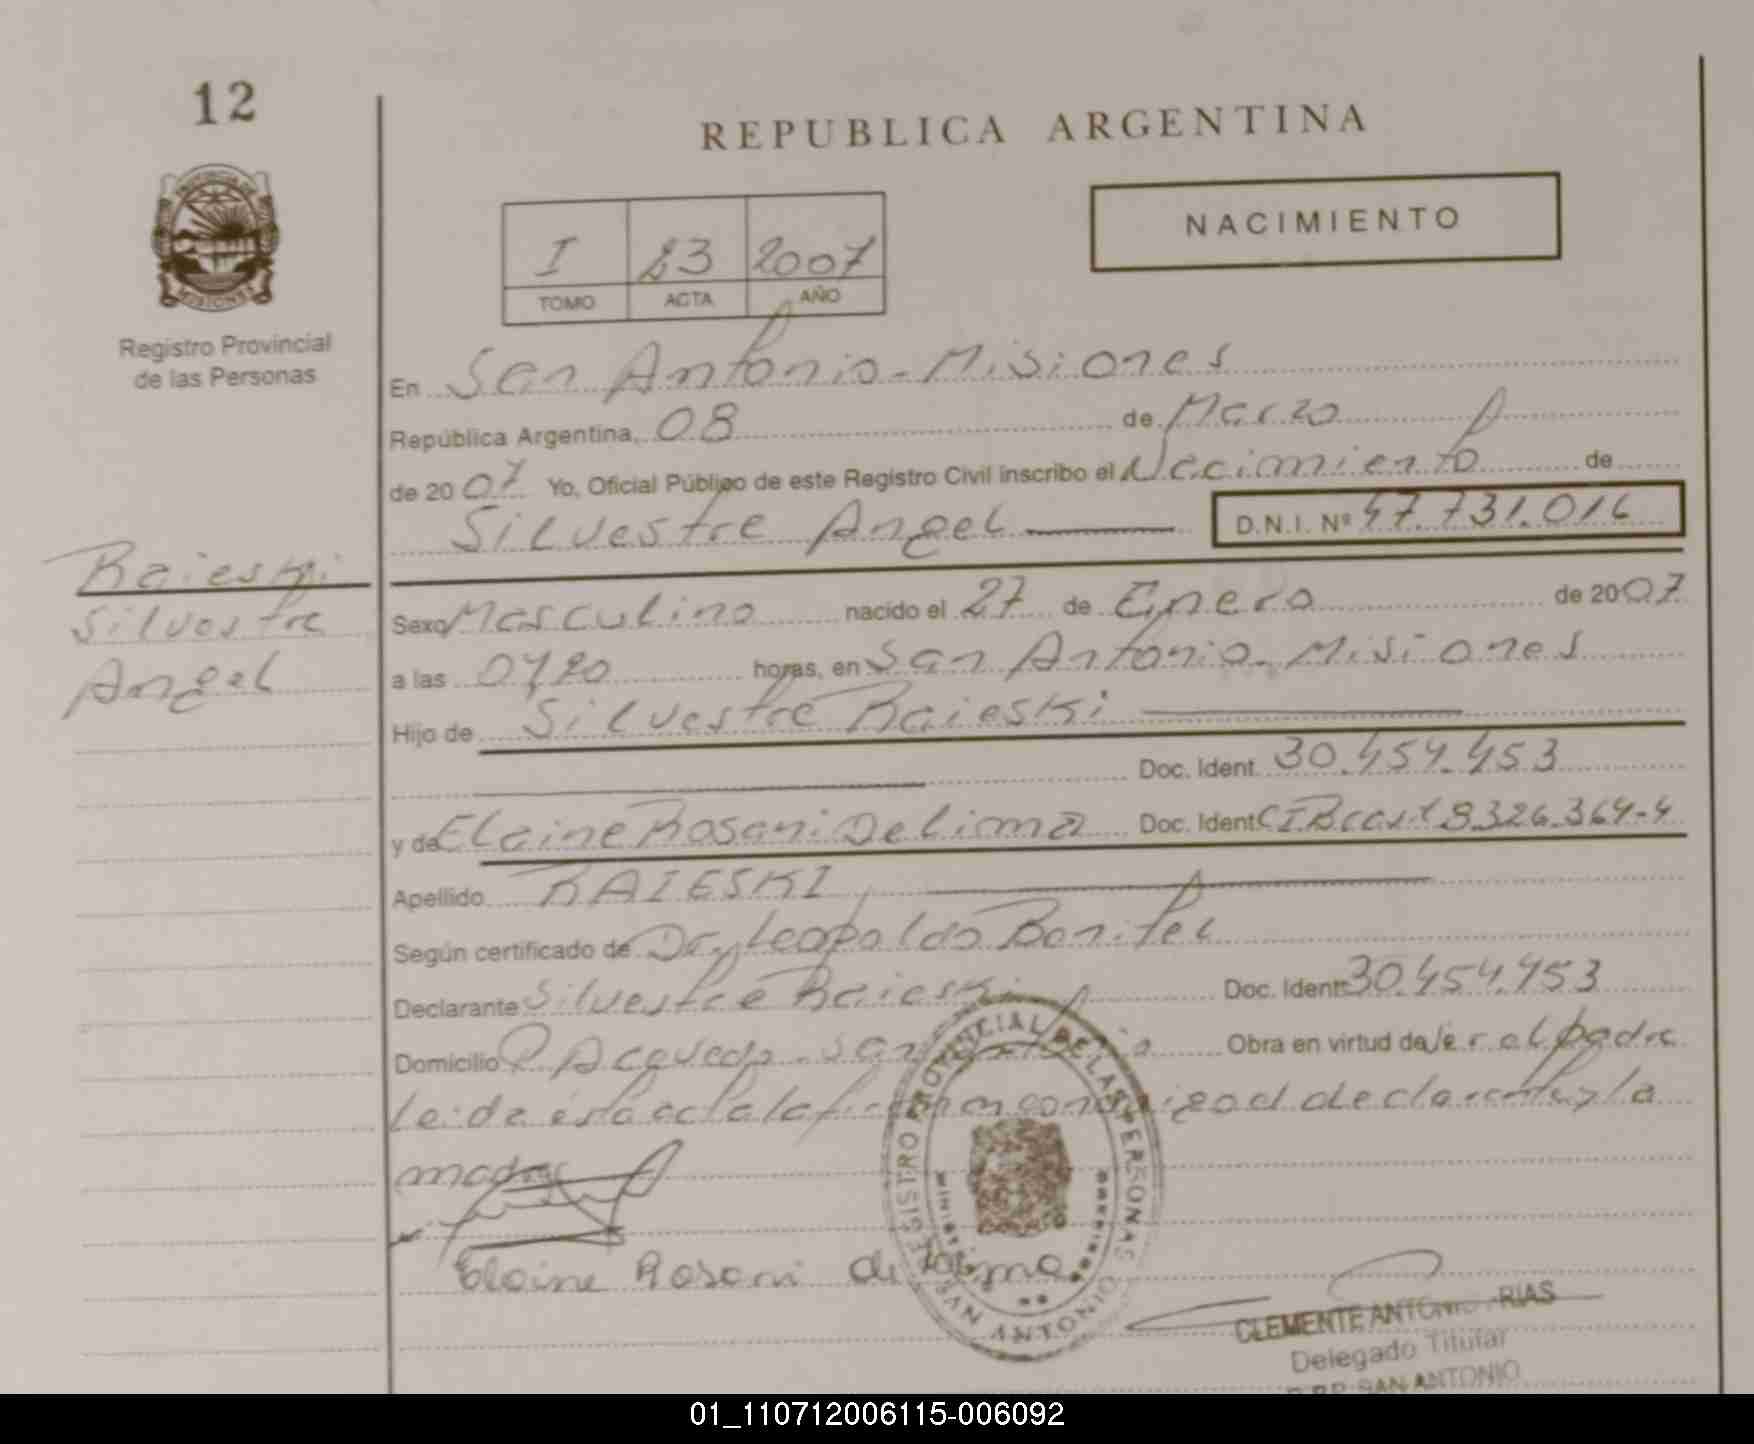 12
REPUBLICA ARGENTINA
NACIMIENTO
I 23 2007
TOMO ACTA AÑO
PROVINCIA DE
MISIONES
Registro Provincial
de las Personas
En San Antonio - Misiones
República Argentina, 08 de Marzo
de 2007 Yo, Oficial Público de este Registro Civil inscribo el Nacimiento de
Silvestre Angel D.N.I. Nº 47.731.016
Raieski
Silvestre
Angel
Sexo Masculino nacido el 27 de Enero de 2007
a las horas, en San Antonio - Misiones
Hijo de Silvestre Raieski
Doc. Ident. 30.454.453
y de Elaine Rosani De lima Doc. Ident. CI Brasil 8.326.364-4
Apellido RAIESKI
Según certificado de Dr. Leopoldo
Declarante Silvestre Raieski Doc. Ident. 30.454.453
Domicilio P. Acevedo - San Antonio Obra en virtud de ser el padre
Leida esta acta la firman conmigo el declarante y la
madre
Elaine Rosani de lima
REGISTRO PROVINCIAL DE LAS PERSONAS
SAN ANTONIO
CLEMENTE ANTONIO
Delegado Titular
SAN ANTONIO
01_110712006115-006092